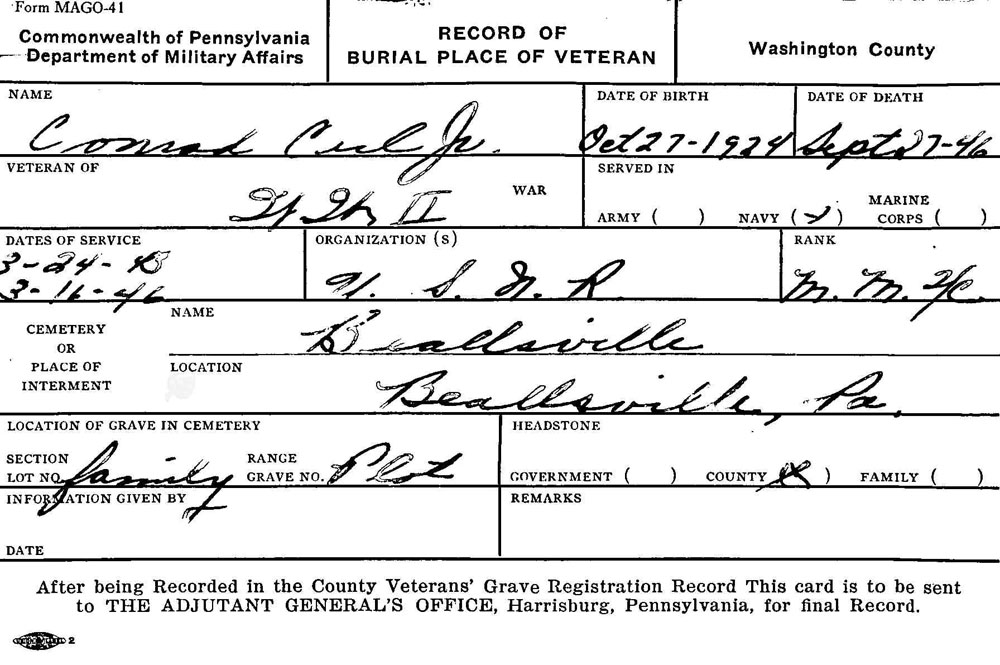 Form MAGO-41
Commonwealth of Pennsylvania
Department of Military Affairs
RECORD OF
BURIAL PLACE OF VETERAN
Washington County
NAME
Conrad Jr.
DATE OF BIRTH
Oct 27-1924
DATE OF DEATH
Sept 27-46
VETERAN OF
II
WAR
SERVED IN
ARMY ( ) NAVY ( ) MARINE CORPS ( )
DATES OF SERVICE
3-24-43
3-16-46
ORGANIZATION (S)
U. S. N. R.
RANK
M. M. 2/C.
CEMETERY
OR
PLACE OF
INTERMENT
NAME
Beallsville
LOCATION
Beallsville, Pa.
LOCATION OF GRAVE IN CEMETERY
SECTION
LOT NO. family
RANGE
GRAVE NO. Plot
HEADSTONE
GOVERNMENT ( ) COUNTY (X) FAMILY ( )
INFORMATION GIVEN BY
DATE
REMARKS
After being Recorded in the County Veterans' Grave Registration Record This card is to be sent
to THE ADJUTANT GENERAL'S OFFICE, Harrisburg, Pennsylvania, for final Record.
2